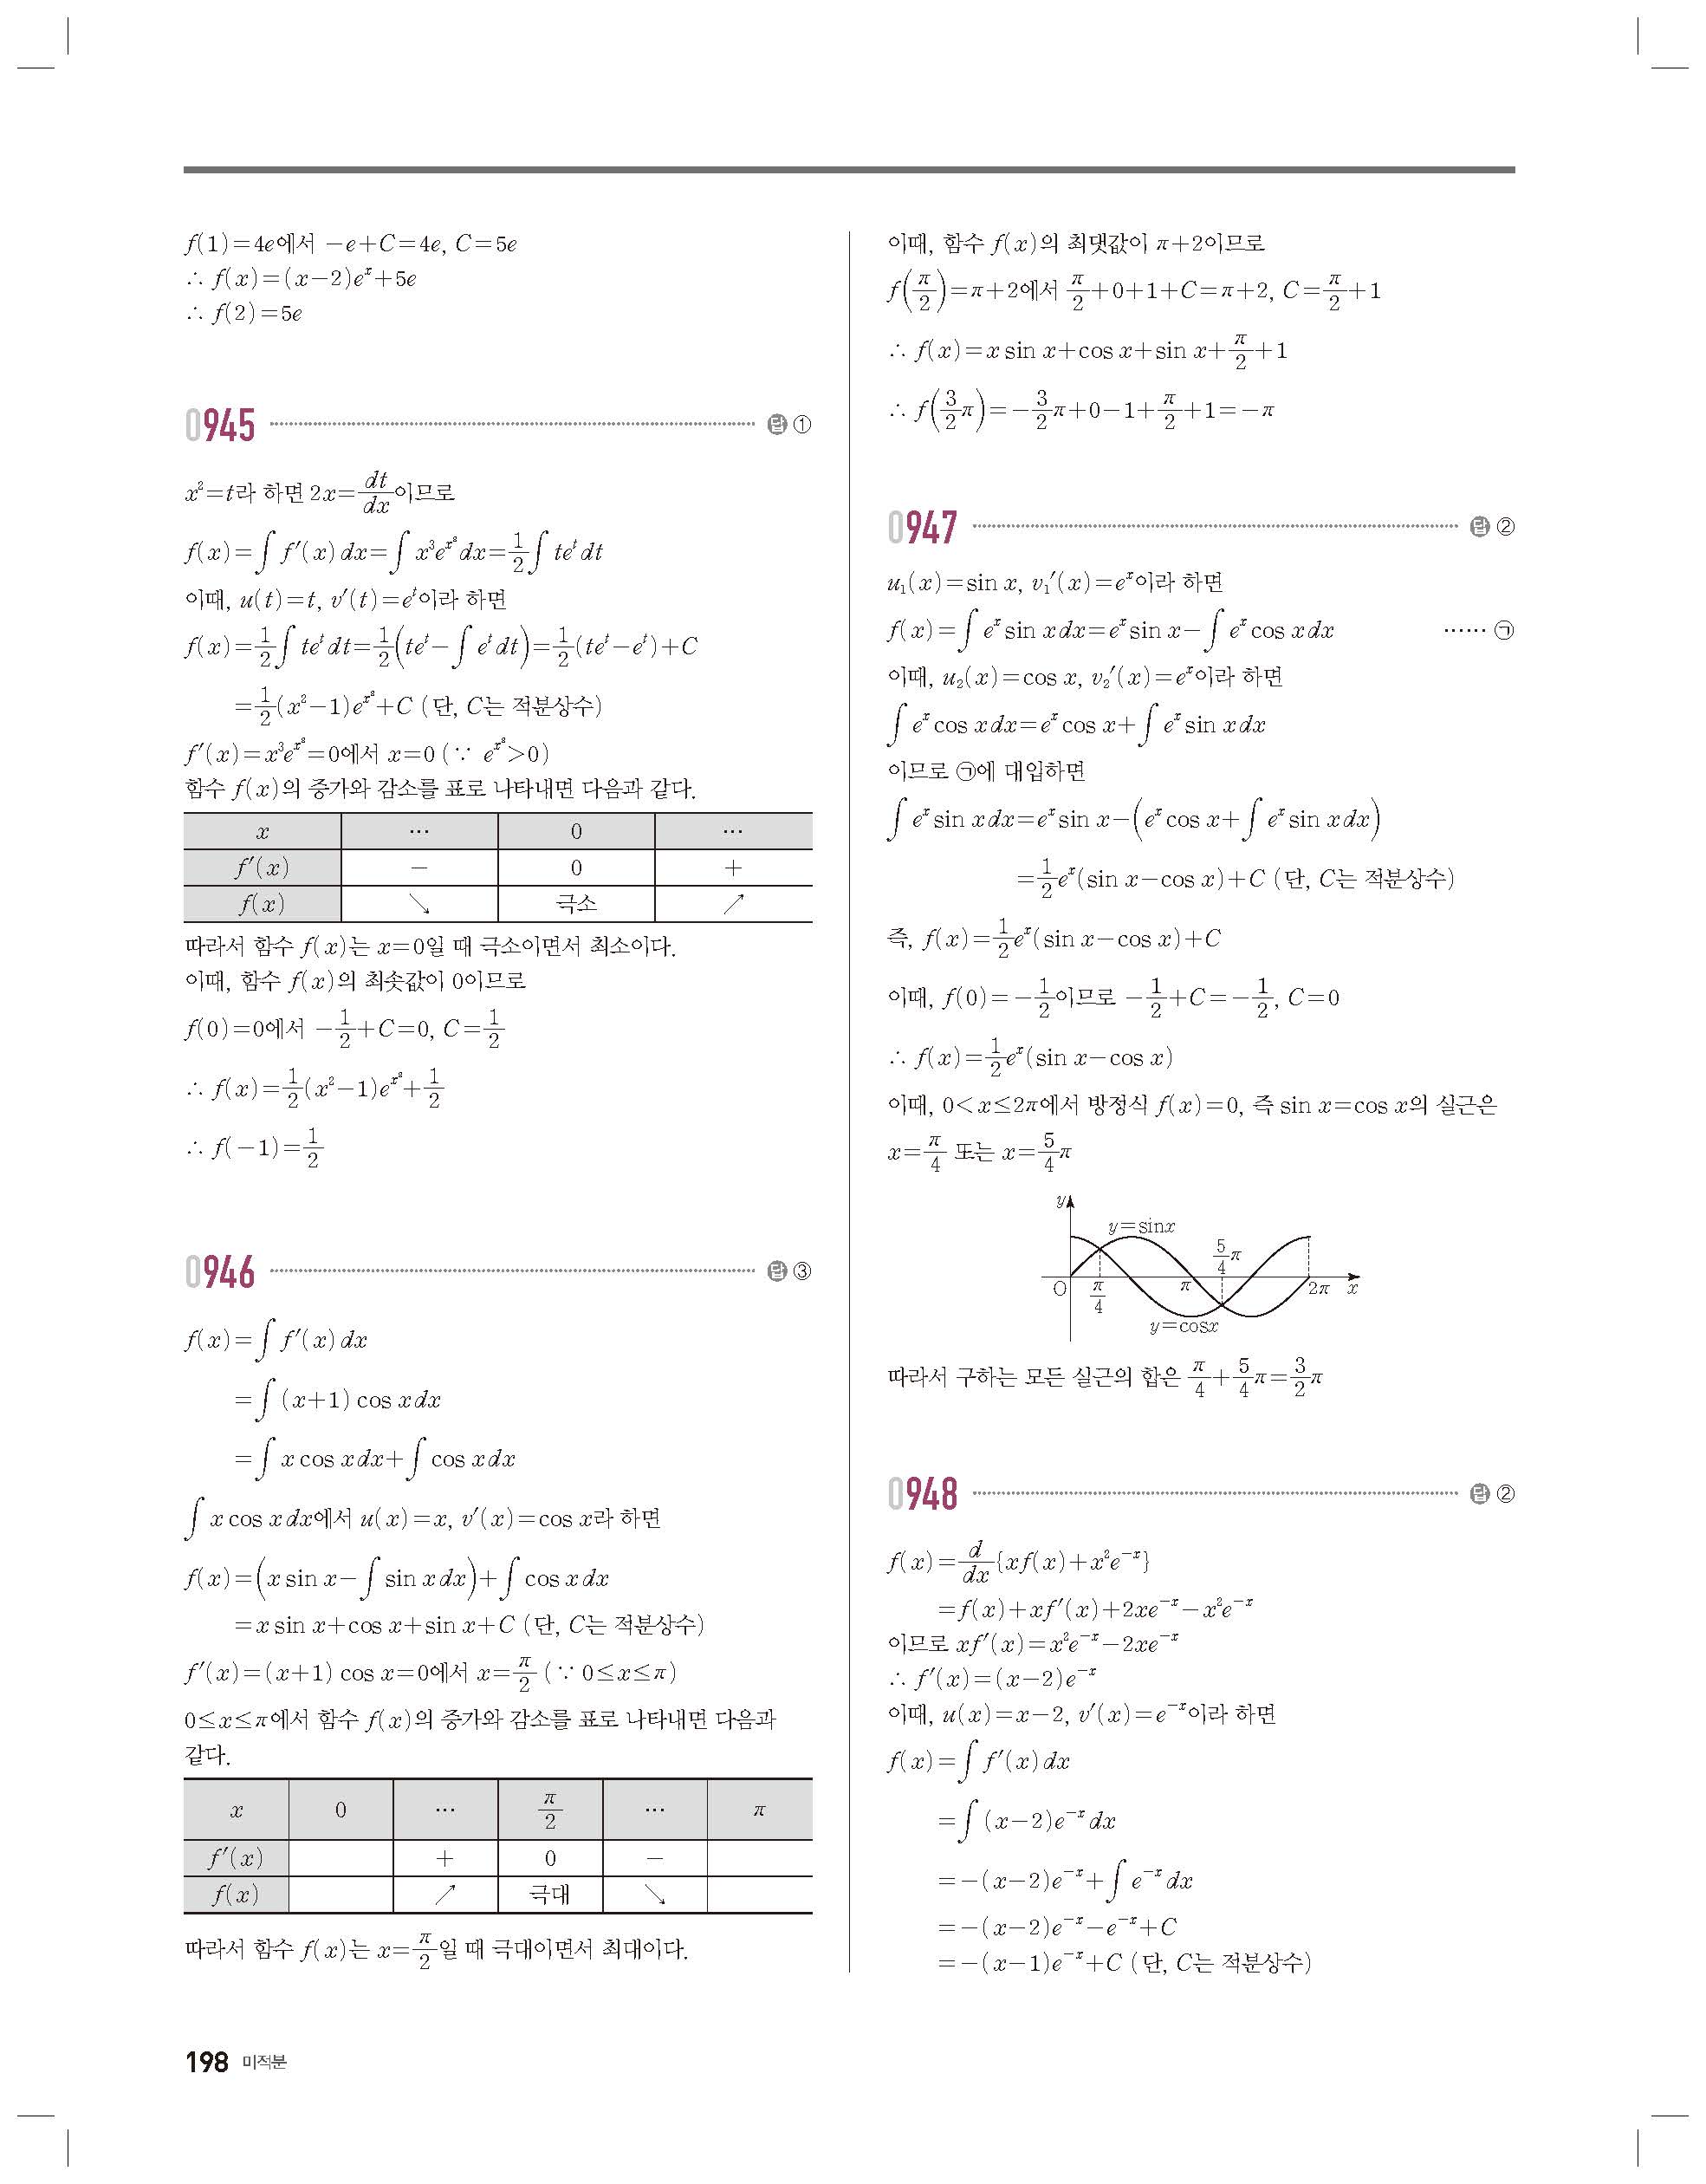 f(1)=4e에서 -e+C=4e, C=5e
∴ f(x)=(x-2)eˣ+5e
∴ f(2)=5e
0945 답 ①
x²=t라 하면 2x=dt/dx이므로
f(x)=∫f′(x)dx=∫x³e^(x²)dx=1/2∫teᵗdt
이때, u(t)=t, v′(t)=eᵗ이라 하면
f(x)=1/2∫teᵗdt=1/2(teᵗ-∫eᵗdt)=1/2(teᵗ-eᵗ)+C
=1/2(x²-1)e^(x²)+C (단, C는 적분상수)
f′(x)=x³e^(x²)=0에서 x=0 (∵ e^(x²)>0)
함수 f(x)의 증가와 감소를 표로 나타내면 다음과 같다.
x … 0 …
f′(x) - 0 +
f(x) ↘ 극소 ↗
따라서 함수 f(x)는 x=0일 때 극소이면서 최소이다.
이때, 함수 f(x)의 최솟값이 0이므로
f(0)=0에서 -1/2+C=0, C=1/2
∴ f(x)=1/2(x²-1)e^(x²)+1/2
∴ f(-1)=1/2
0946 답 ③
f(x)=∫f′(x)dx
=∫(x+1)cos xdx
=∫x cos xdx+∫cos xdx
∫x cos xdx에서 u(x)=x, v′(x)=cos x라 하면
f(x)=(x sin x-∫sin xdx)+∫cos xdx
=x sin x+cos x+sin x+C (단, C는 적분상수)
f′(x)=(x+1)cos x=0에서 x=π/2 (∵ 0≤x≤π)
0≤x≤π에서 함수 f(x)의 증가와 감소를 표로 나타내면 다음과
같다.
x 0 … π/2 … π
f′(x) + 0 -
f(x) ↗ 극대 ↘
따라서 함수 f(x)는 x=π/2일 때 극대이면서 최대이다.
이때, 함수 f(x)의 최댓값이 π+2이므로
f(π/2)=π+2에서 π/2+0+1+C=π+2, C=π/2+1
∴ f(x)=x sin x+cos x+sin x+π/2+1
∴ f(3/2π)=-3/2π+0-1+π/2+1=-π
0947 답 ②
u₁(x)=sin x, v₁′(x)=eˣ이라 하면
f(x)=∫eˣ sin xdx=eˣ sin x-∫eˣ cos xdx …… ㉠
이때, u₂(x)=cos x, v₂′(x)=eˣ이라 하면
∫eˣ cos xdx=eˣ cos x+∫eˣ sin xdx
이므로 ㉠에 대입하면
∫eˣ sin xdx=eˣ sin x-(eˣ cos x+∫eˣ sin xdx)
=1/2eˣ(sin x-cos x)+C (단, C는 적분상수)
즉, f(x)=1/2eˣ(sin x-cos x)+C
이때, f(0)=-1/2이므로 -1/2+C=-1/2, C=0
∴ f(x)=1/2eˣ(sin x-cos x)
이때, 0<x≤2π에서 방정식 f(x)=0, 즉 sin x=cos x의 실근은
x=π/4 또는 x=5/4π
y
y=sinx
5/4π
O π/4 π 2π x
y=cosx
따라서 구하는 모든 실근의 합은 π/4+5/4π=3/2π
0948 답 ②
f(x)=d/dx{xf(x)+x²e⁻ˣ}
=f(x)+xf′(x)+2xe⁻ˣ-x²e⁻ˣ
이므로 xf′(x)=x²e⁻ˣ-2xe⁻ˣ
∴ f′(x)=(x-2)e⁻ˣ
이때, u(x)=x-2, v′(x)=e⁻ˣ이라 하면
f(x)=∫f′(x)dx
=∫(x-2)e⁻ˣdx
=-(x-2)e⁻ˣ+∫e⁻ˣdx
=-(x-2)e⁻ˣ-e⁻ˣ+C
=-(x-1)e⁻ˣ+C (단, C는 적분상수)
198 미적분